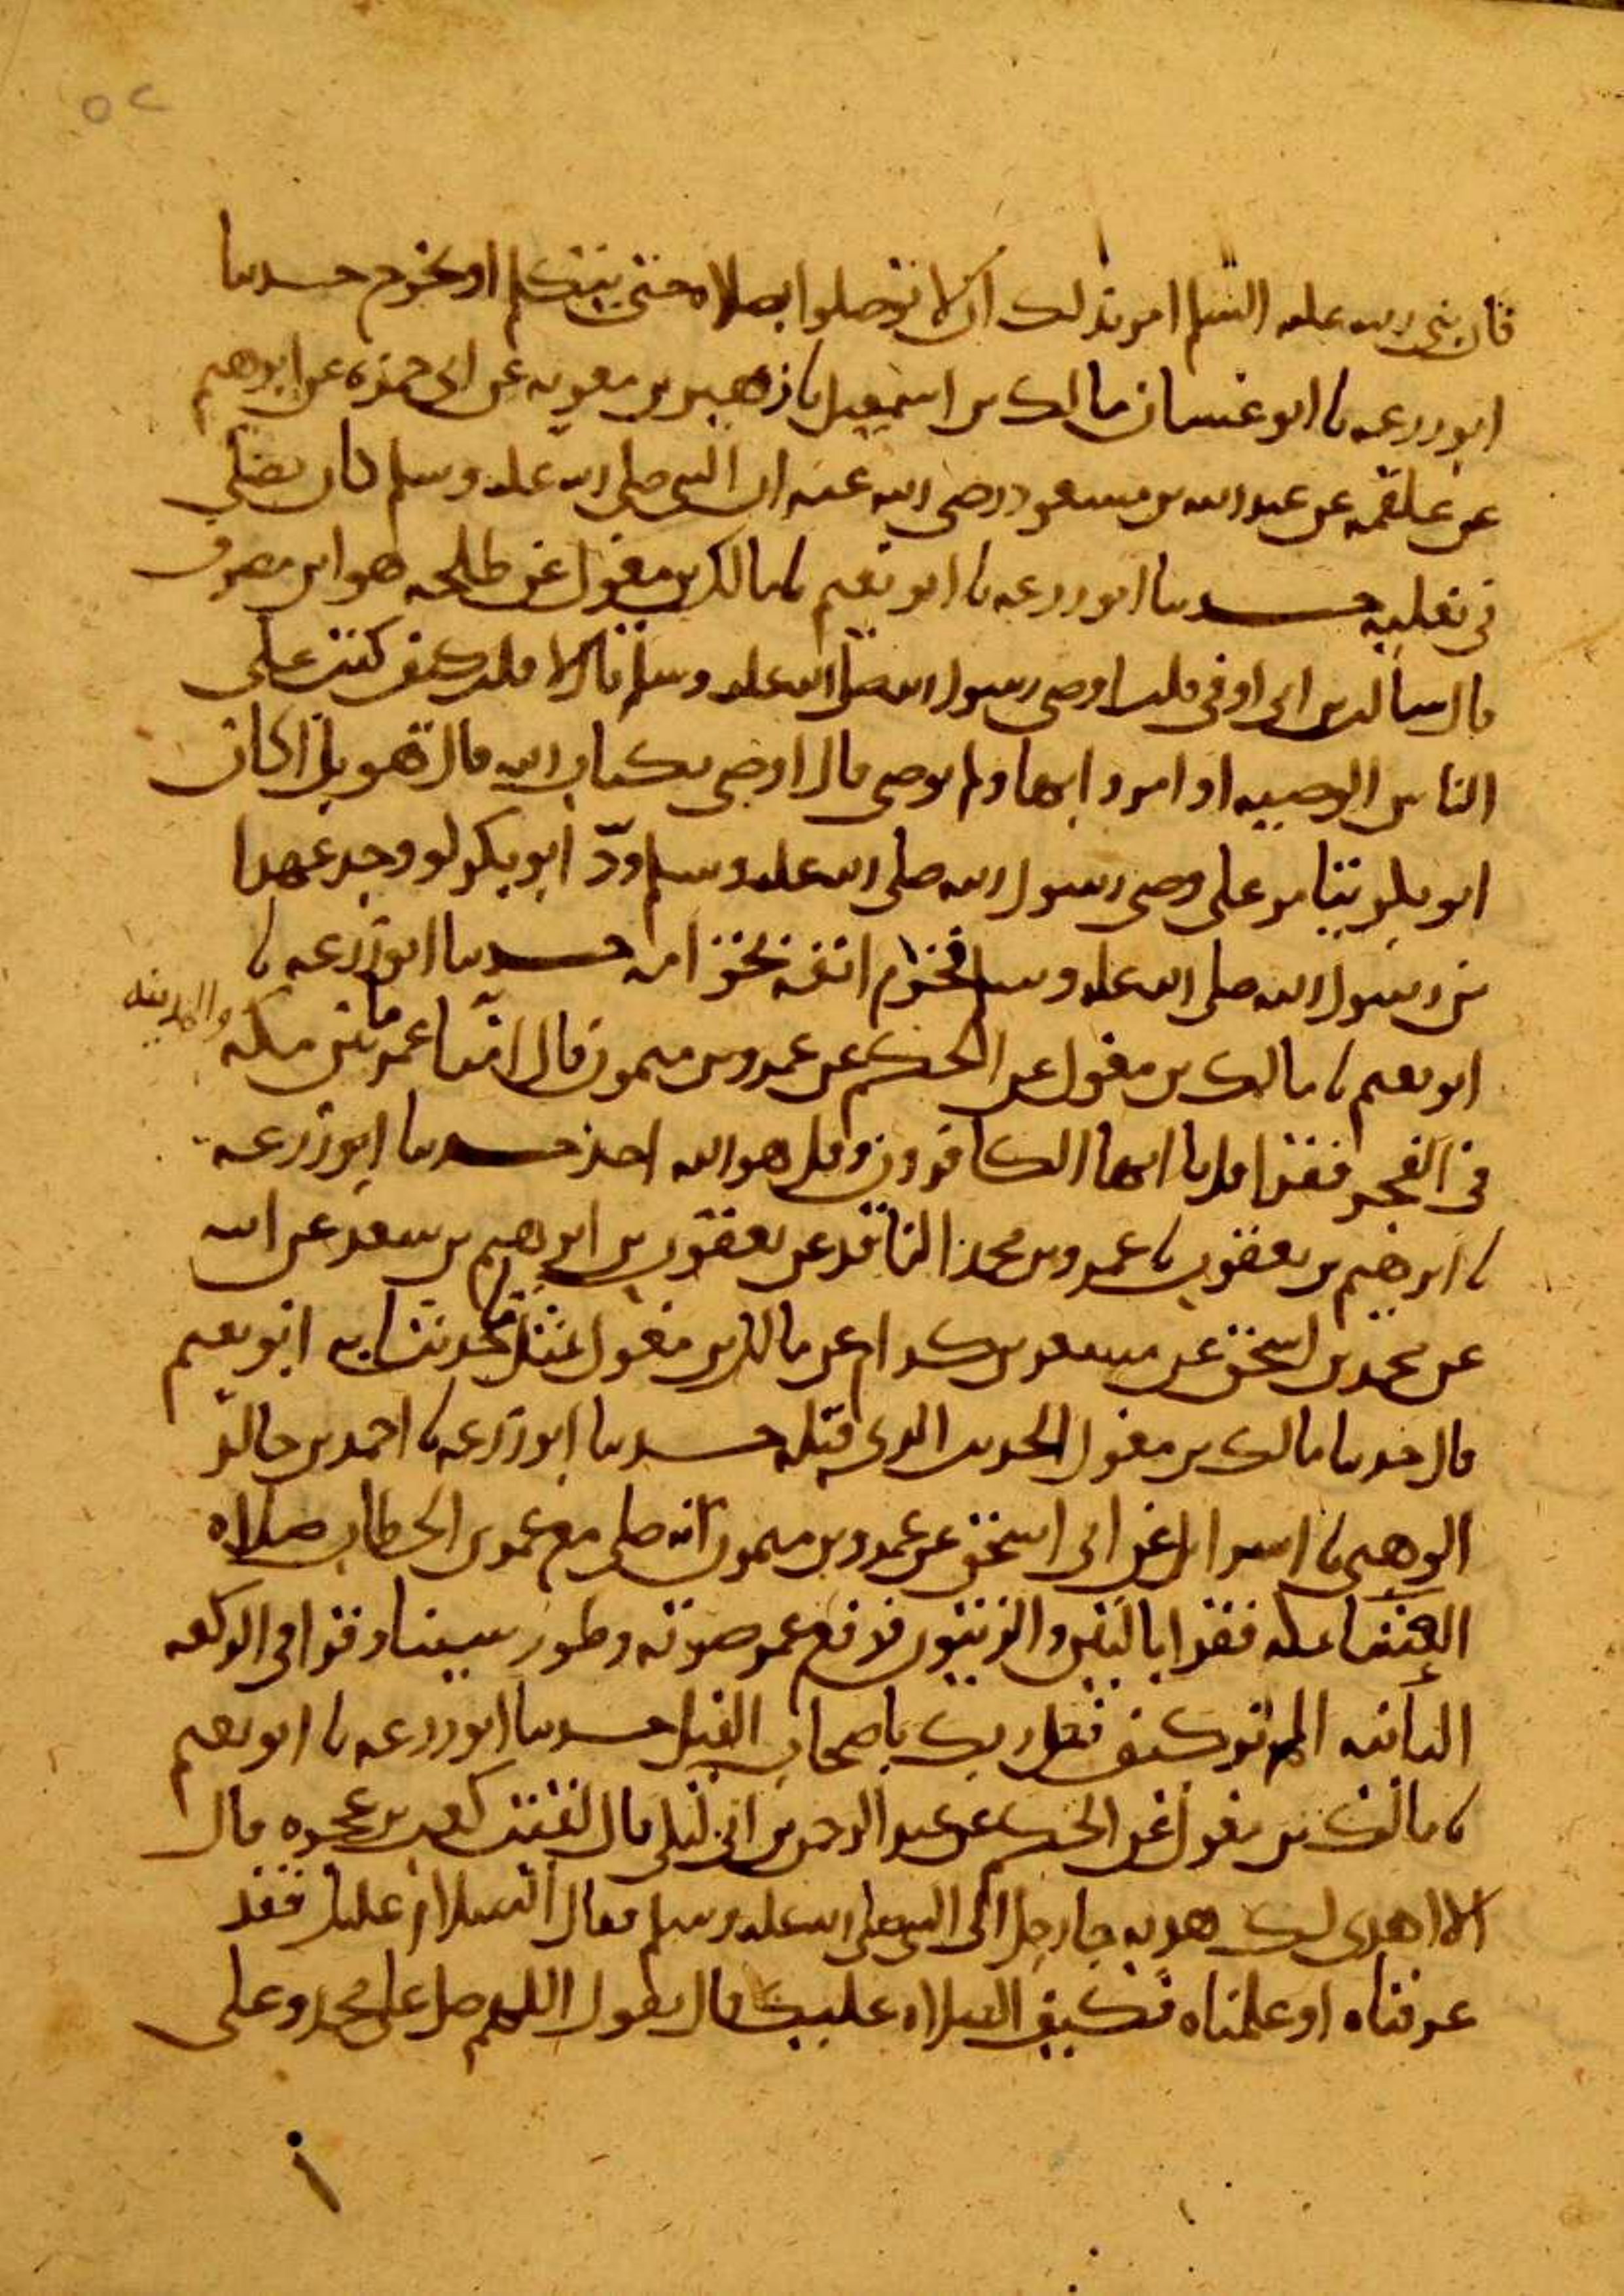 ٥٢
فان نبي الله عليه السلم امر بذلك ان لا توصلوا بصلاة حتى يتكلم او يخرج حدثنا
ابو زرعه نا ابو غسان مالك بن اسمعيل نا زهير بن معويه عن ابي حمزه عن ابرهيم
عن علقمه عن عبد الله بن مسعود رضي الله عنه ان النبي صلى الله عليه وسلم كان يصلي
في نعليه حدثنا ابو زرعه نا ابو نعيم نا مالك بن مغول عن طلحه هو ابن مصرف
قال سالت بن ابي اوفى قلت اوصى رسول الله صلى الله عليه وسلم قال لا قلت كيف كتب على
الناس الوصيه او امروا بها ولم يوصي قال اوصى بكتاب الله قال هزيل اكان
ابو بكر يتامر على وصي رسول الله صلى الله عليه وسلم ود ابو بكر لو وجد عهدا
من رسول الله صلى الله عليه وسلم فخزم انفه بخزامه حدثنا ابو زرعه نا
ابو نعيم نا مالك بن مغول عن الحكم عن عمرو بن ميمون قال امنا عمر بين مكه والمدينه
في الفجر فقرا قل يا ايها الكافرون وقل هو الله احد حدثنا ابو زرعه
نا ابرهيم بن يعقوب نا عمرو بن محمد الناقد عن يعقوب بن ابرهيم بن سعد عن ابيه
عن محمد بن اسحق عن مسعر بن كدام عن مالك بن مغول مثل ما حدثنا به ابو نعيم
قال حدثنا مالك بن مغول الحديث الذي قبله حدثنا ابو زرعه نا احمد بن خالد
الوهبي نا اسرائل عن ابي اسحق عن عمرو بن ميمون انه صلى مع عمر بن الخطاب صلاه
العشا بمكه فقرا بالتين والزيتون فرفع عمر صوته وطور سينا وقرا في الركعه
الثانيه الم تر كيف فعل ربك باصحاب الفيل حدثنا ابو زرعه نا ابو نعيم
نا مالك بن مغول عن الحكم عن عبد الرحمن بن ابي ليلى قال لقيت كعب بن عجره قال
الا اهدي لك هديه جا رجل الى النبي صلى الله عليه وسلم فقال السلام عليك فقد
عرفناه او علمناه فكيف الصلاه عليك قال يقول اللهم صل على محمد وعلى